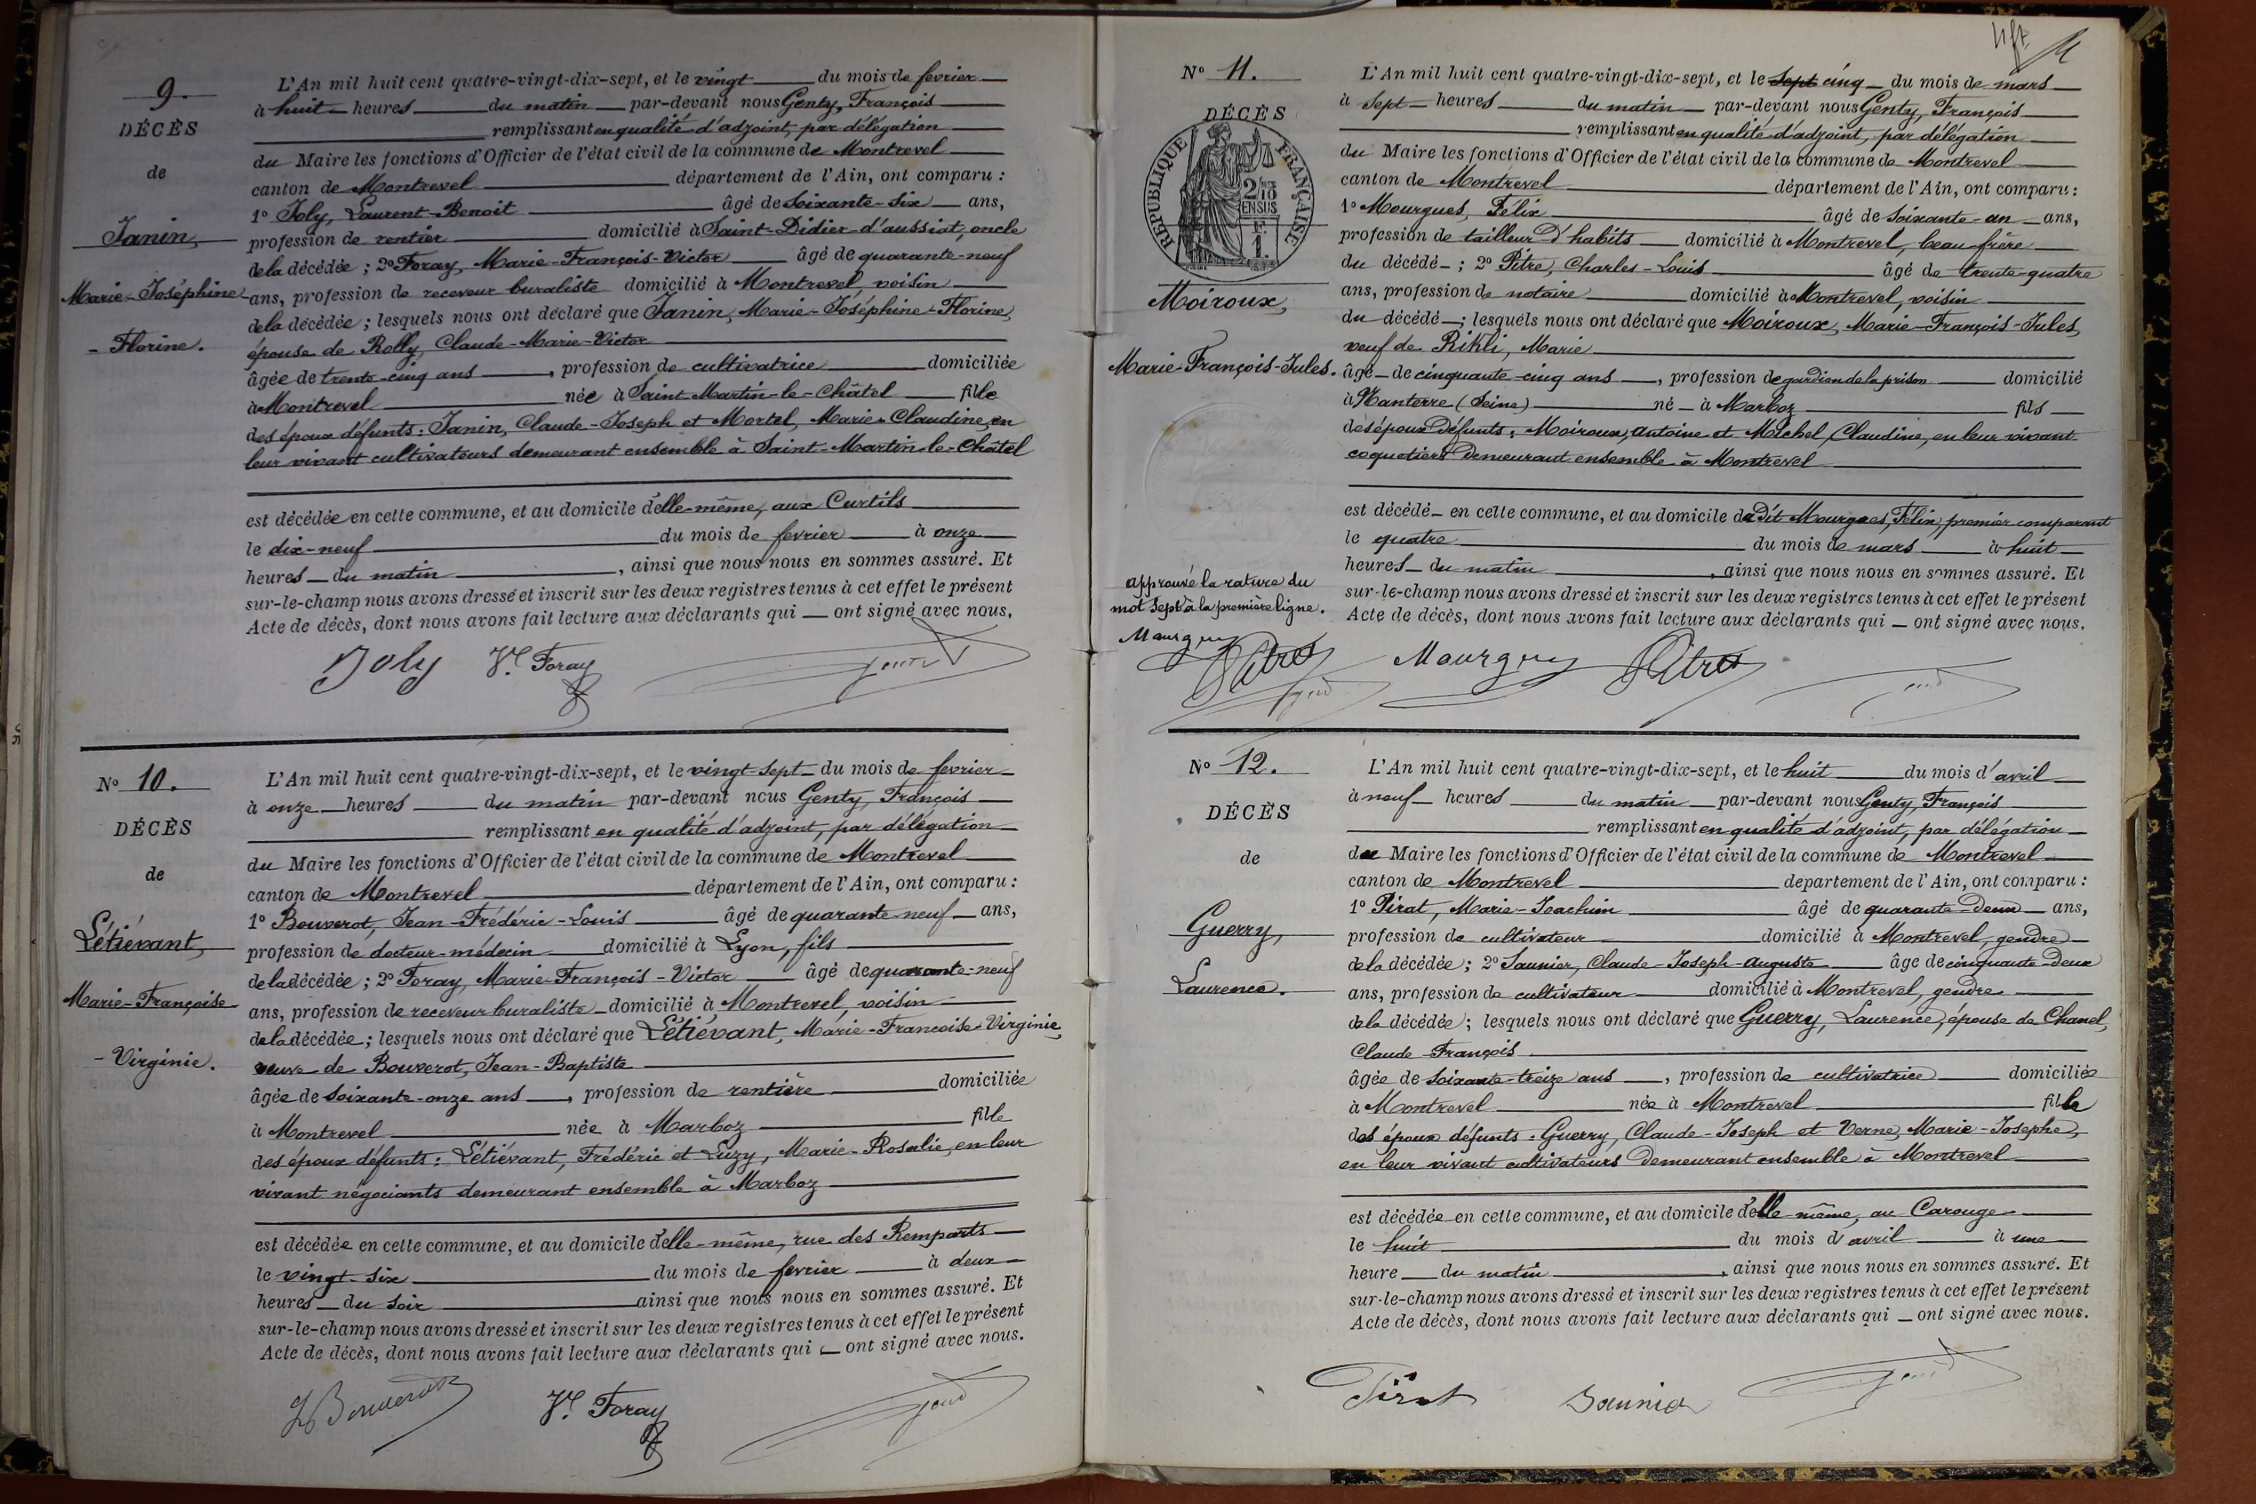 9.
DÉCÈS
de
Janin,
Marie-Joséphine
-Florine.
L'An mil huit cent quatre-vingt-dix-sept, et le vingt du mois de fevrier
à huit heures du matin par-devant nous Genty, François
remplissant en qualité d'adjoint, par délégation
du Maire les fonctions d'Officier de l'état civil de la commune de Montrevel
canton de Montrevel département de l'Ain, ont comparu :
1º Joly, Laurent-Benoit âgé de soixante-six ans,
profession de rentier domicilié à Saint-Didier-d'aussiat, oncle
de la décédée ; 2º Foray, Marie-François-Victor âgé de quarante-neuf
ans, profession de receveur buraliste domicilié à Montrevel, voisin
de la décédée ; lesquels nous ont déclaré que Janin, Marie-Joséphine-Florine,
épouse de Rolly, Claude-Marie-Victor
âgée de trente-cinq ans, profession de cultivatrice domiciliée
à Montrevel née à Saint-Martin-le-Châtel fille
des époux défunts : Janin, Claude-Joseph et Mortel, Marie-Claudine, en
leur vivant cultivateurs demeurant ensemble à Saint-Martin-le-Châtel
est décédée en cette commune, et au domicile d'elle-même, aux Curtils
le dix-neuf du mois de fevrier à onze
heures du matin, ainsi que nous nous en sommes assuré. Et
sur-le-champ nous avons dressé et inscrit sur les deux registres tenus à cet effet le présent
Acte de décès, dont nous avons fait lecture aux déclarants qui ont signé avec nous.
Joly Vr. Foray
Nº 10.
DÉCÈS
de
Létiévant,
Marie-Françoise
-Virginie.
L'An mil huit cent quatre-vingt-dix-sept, et le vingt-sept du mois de fevrier
à onze heures du matin par-devant nous Genty, François
remplissant en qualité d'adjoint, par délégation
du Maire les fonctions d'Officier de l'état civil de la commune de Montrevel
canton de Montrevel département de l'Ain, ont comparu :
1º Bouverot, Jean-Frédéric-Louis âgé de quarante-neuf ans,
profession de docteur-médecin domicilié à Lyon, fils
de la décédée ; 2º Foray, Marie-François-Victor âgé de quarante-neuf
ans, profession de receveur buraliste domicilié à Montrevel, voisin
de la décédée ; lesquels nous ont déclaré que Létiévant, Marie-Françoise-Virginie,
veuve de Bouverot, Jean-Baptiste
âgée de soixante-onze ans, profession de rentière domiciliée
à Montrevel née à Marboz fille
des époux défunts : Létiévant, Frédéric et Luzy, Marie-Rosalie, en leur
vivant négociants demeurant ensemble à Marboz
est décédée en cette commune, et au domicile d'elle-même, rue des Remparts
le vingt-six du mois de fevrier à deux
heures du soir ainsi que nous nous en sommes assuré. Et
sur-le-champ nous avons dressé et inscrit sur les deux registres tenus à cet effet le présent
Acte de décès, dont nous avons fait lecture aux déclarants qui ont signé avec nous.
Bouverot Vr. Foray
Nº 11.
DÉCÈS
RÉPUBLIQUE FRANÇAISE
Moiroux,
Marie-François-Jules.
L'An mil huit cent quatre-vingt-dix-sept, et le sept cinq du mois de mars
à sept heures du matin par-devant nous Genty, François
remplissant en qualité d'adjoint, par délégation
du Maire les fonctions d'Officier de l'état civil de la commune de Montrevel
canton de Montrevel département de l'Ain, ont comparu :
1º Mourgues, Félix âgé de soixante-un ans,
profession de tailleur d'habits domicilié à Montrevel, beau-frère
du décédé ; 2º Pitre, Charles-Louis âgé de trente-quatre
ans, profession de notaire domicilié à Montrevel, voisin
du décédé ; lesquels nous ont déclaré que Moiroux, Marie-François-Jules,
veuf de Rikli, Marie
âgé de cinquante-cinq ans, profession de gardien de la prison domicilié
à Nanterre (Seine) né à Marboz fils
des époux défunts : Moiroux, Antoine et Michel, Claudine, en leur vivant
coquetiers demeurant ensemble à Montrevel
est décédé en cette commune, et au domicile du dit Mourgues, Félix, premier comparant
le quatre du mois de mars à huit
heures du matin, ainsi que nous nous en sommes assuré. Et
sur-le-champ nous avons dressé et inscrit sur les deux registres tenus à cet effet le présent
Acte de décès, dont nous avons fait lecture aux déclarants qui ont signé avec nous.
approuvé la rature du
mot sept à la première ligne.
Mourgues
Pitre Mourgues Pitre
Nº 12.
DÉCÈS
de
Guerry,
Laurence.
L'An mil huit cent quatre-vingt-dix-sept, et le huit du mois d'avril
à neuf heures du matin par-devant nous Genty, François
remplissant en qualité d'adjoint, par délégation
du Maire les fonctions d'Officier de l'état civil de la commune de Montrevel
canton de Montrevel département de l'Ain, ont comparu :
1º Pirat, Marie-Joachim âgé de quarante-deux ans,
profession de cultivateur domicilié à Montrevel, gendre
de la décédée ; 2º Saunier, Claude-Joseph-Auguste âgé de cinquante-deux
ans, profession de cultivateur domicilié à Montrevel, gendre
de la décédée ; lesquels nous ont déclaré que Guerry, Laurence, épouse de Chanel,
Claude-François
âgée de soixante-treize ans, profession de cultivatrice domiciliée
à Montrevel née à Montrevel fille
des époux défunts : Guerry, Claude-Joseph et Verne, Marie-Josephe,
en leur vivant cultivateurs demeurant ensemble à Montrevel
est décédée en cette commune, et au domicile d'elle même, au Carouge
le huit du mois d'avril à une
heure du matin, ainsi que nous nous en sommes assuré. Et
sur-le-champ nous avons dressé et inscrit sur les deux registres tenus à cet effet le présent
Acte de décès, dont nous avons fait lecture aux déclarants qui ont signé avec nous.
Pirat Saunier